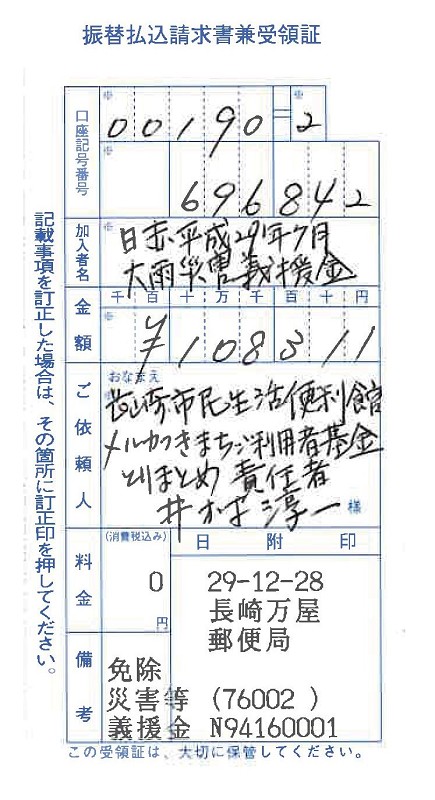 振替払込請求書兼受領証
口座記号番号
00190=2
696842
加入者名
日赤平成29年7月
大雨災害義援金
金額
千百十万千百十円
¥108311
ご依頼人
おなまえ
長崎市民生活便利館
メルカつきまちご利用者基金
とりまとめ責任者
淳一 様
料金
(消費税込み)
0
円
日附印
29-12-28
長崎万屋
郵便局
備考
免除
災害等 (76002 )
義援金 N94160001
記載事項を訂正した場合は、その箇所に訂正印を押してください。
この受領証は、大切に保管してください。